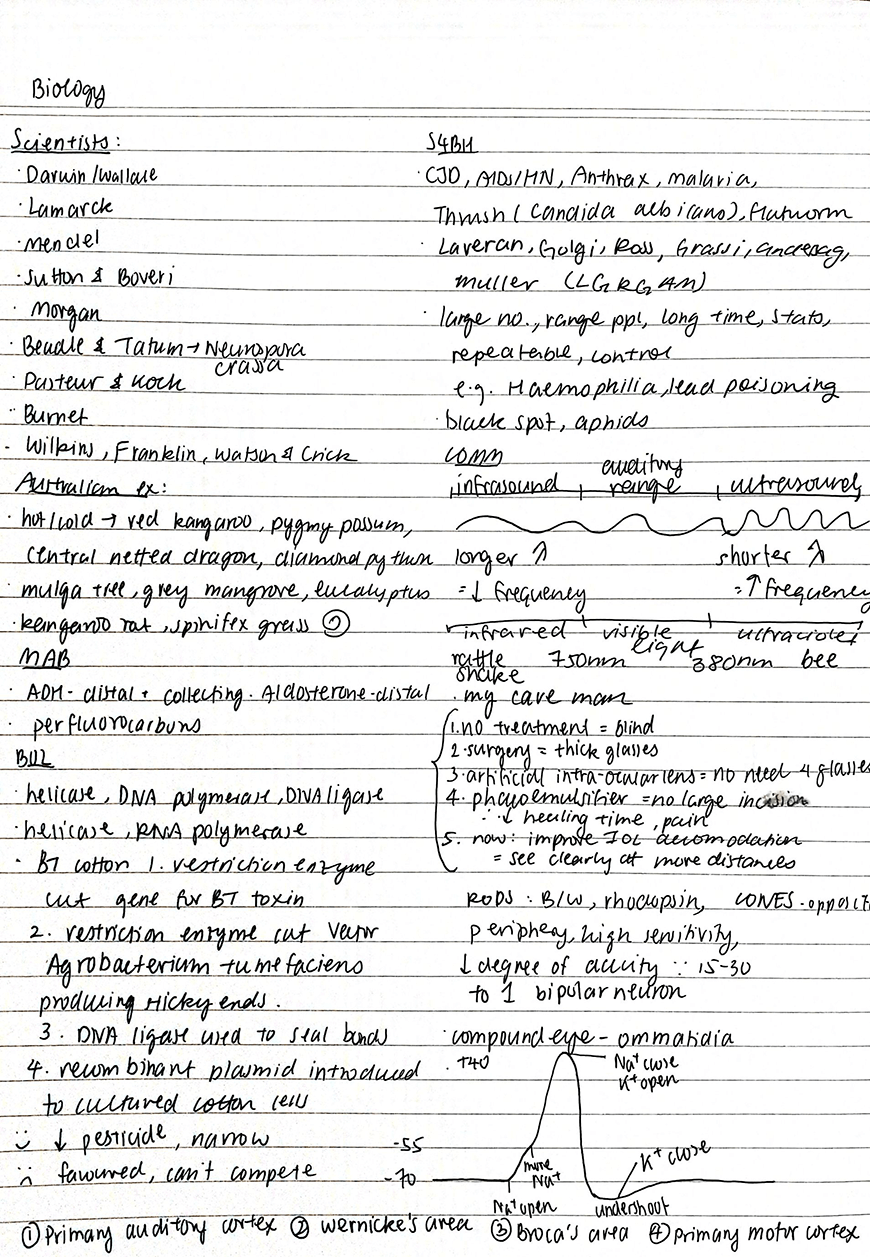 Biology
Scientists:
· Darwin/Wallace
· Lamarck
· Mendel
· Sutton & Boveri
· Morgan
· Beadle & Tatum → Neurospora
crassa
· Pasteur & Koch
· Burnet
· Wilkins, Franklin, Watson & Crick
Australian ex:
· hot/cold → red kangaroo, pygmy possum,
central netted dragon, diamond python
· mulga tree, grey mangrove, eucalyptus
· kangaroo rat, spinifex grass
MAB
· ADH - distal + collecting. Aldosterone - distal
· perfluorocarbons
BUL
· helicase, DNA polymerase, DNA ligase
· helicase, RNA polymerase
· BT cotton 1. restriction enzyme
cut gene for BT toxin
2. restriction enzyme cut vector
Agrobacterium tumefaciens
producing sticky ends.
3. DNA ligase used to seal bonds
4. recombinant plasmid introduced
to cultured cotton cells
↓ pesticide, narrow
favoured, can't compete
S4BH
· CJD, AIDS/HN, Anthrax, malaria,
Thrush (Candida albicans), flatworm
· Laveran, Golgi, Ross, Grassi,
muller (LGRGAM)
· large no., range ppl, long time, stats,
repeatable, control
e.g. Haemophilia, lead poisoning
· black spot, aphids
COMM
infrasound auditory range ultrasound
longer λ shorter λ
= ↓ frequency = ↑ frequency
infrared visible light ultraviolet
rattle snake 750nm 380nm bee
· my cave man
1. no treatment = blind
2. surgery = thick glasses
3. artificial intra-ocular lens = no need 4 glasses
4. phacoemulsifier = no large incision
∴ ↓ healing time, pain
5. now: improve IOL accomodation
= see clearly at more distances
RODS: B/W, rhodopsin, CONES - opposite
periphery, high sensitivity,
↓ degree of acuity ∵ 15-30
to 1 bipolar neuron
· compound eye - ommatidia
+40
Na⁺ close
K⁺ open
-55
-70
more Na⁺
Na⁺ open
K⁺ close
undershoot
① Primary auditory cortex ② Wernicke's area ③ Broca's area ④ primary motor cortex